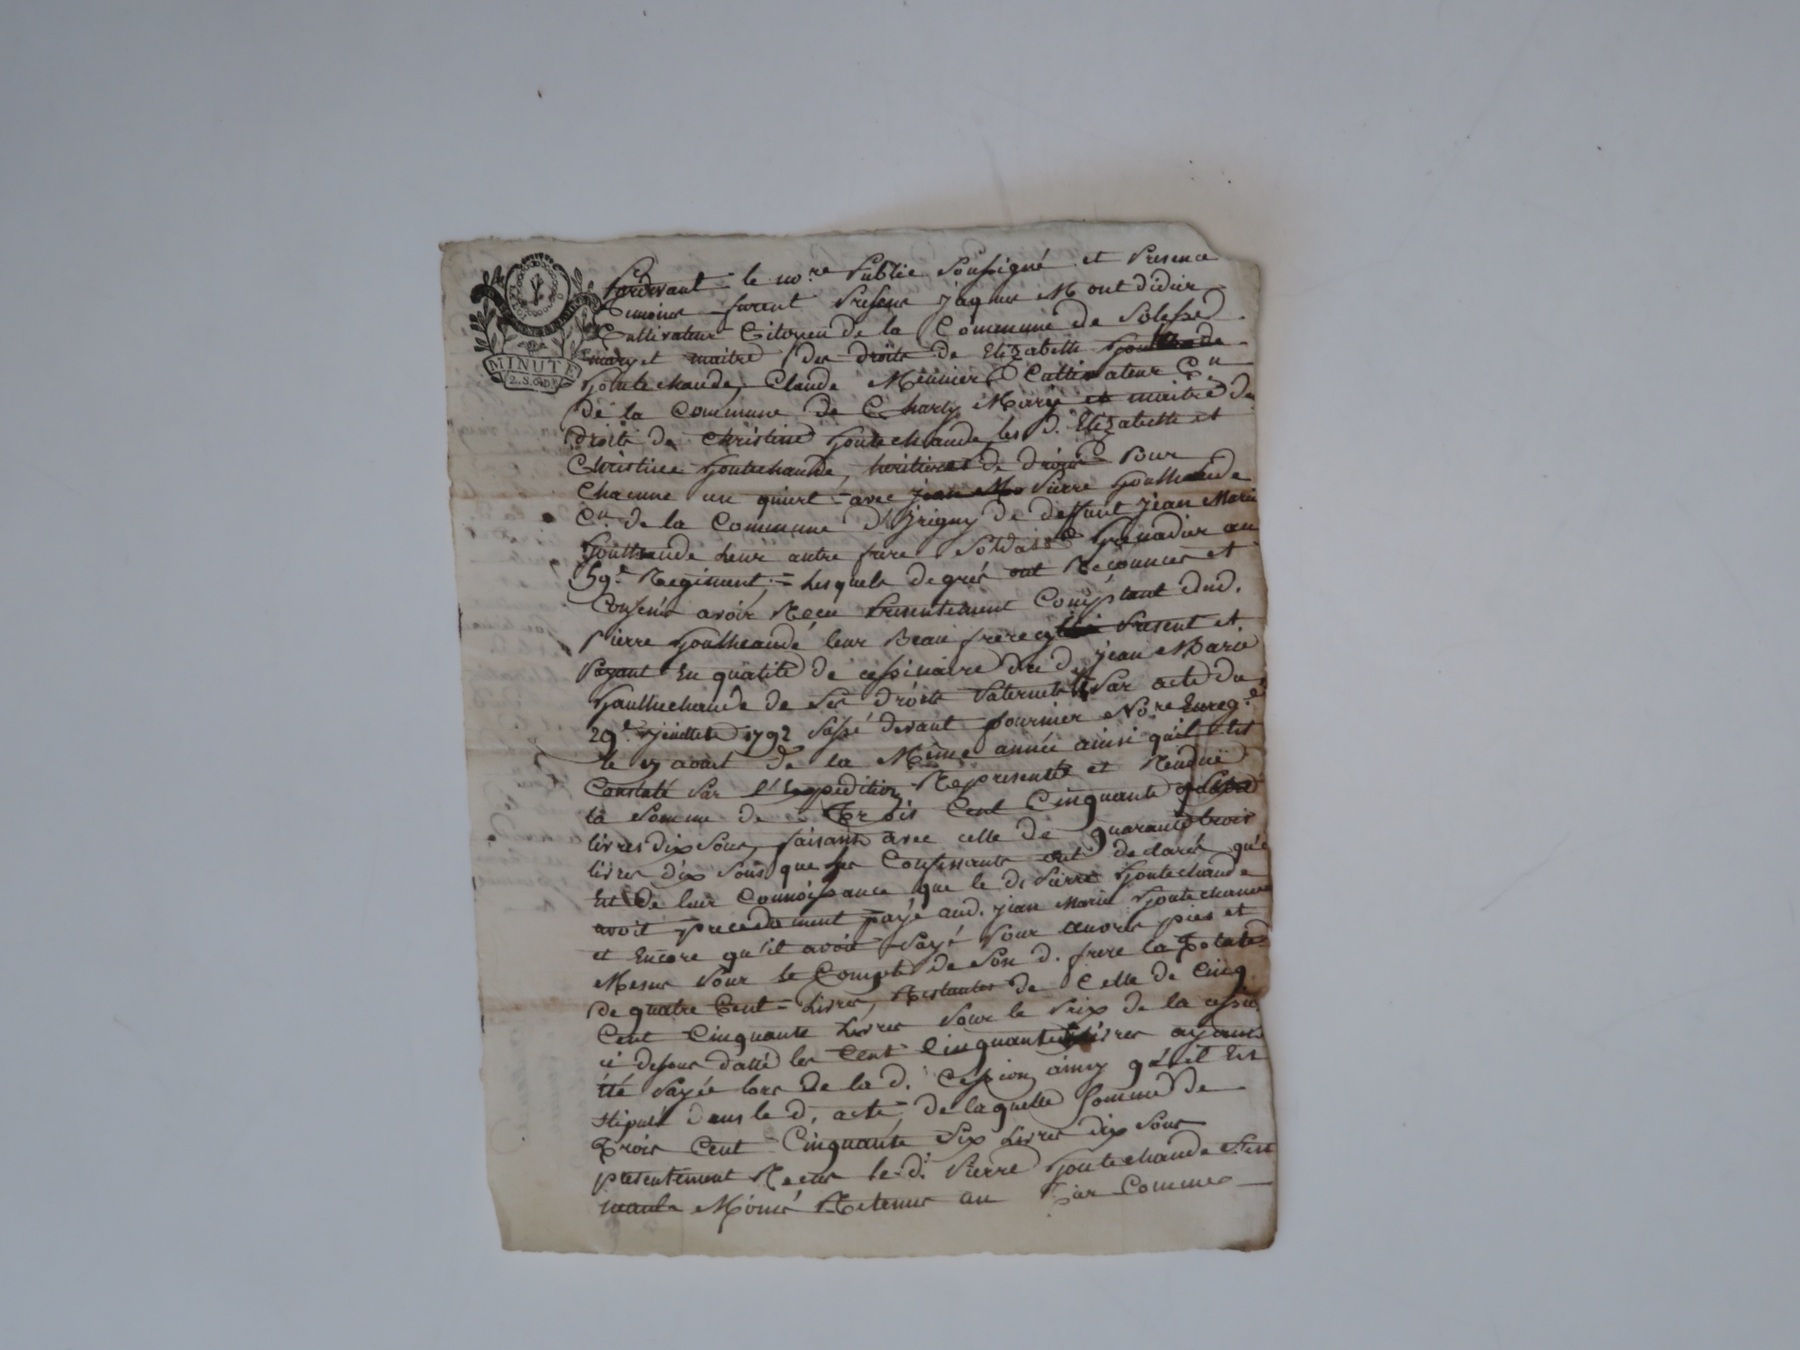 MINUTE
2. S. 6 D.
Pardevant le no.re Public soussigné et Presence
Temoins furent Presens jaques Montdidier
Cultivateur Citoyen de la Commune de
mary et maitre des droits de Elizabette
Goutechaude, Claude Meunier Cultivateur C.n
de la Commune de Charly Mary et maitre des
droits de Christine Goutechaude, les d. Elizabette et
Christine Goutechaude, heritieres de droit Pour
Chacune un quiert avec Pierre Gouthaude
C.n de la Commune d'Irigny de deffunt jean Marie
Gouthaude leur autre frere Soldat Grenadier au
59.e Regiment, = Lesquels degrés ont Reconnus et
Confessé avoir Recu Presentement Comptant dud.
Pierre Goutheaude leur Beau frere Present et
Payant En qualité de cessionaire du d. jean Marie
Gauthechaude de ses droits Paternels Par acte du
29.e juillet 1792 Passé devant fournier No.re Enreg.é
le 7 aoust de la Meme année ainsi qu'il Est
Constaté Par l'Expedition Representée et Rendue
la Somme de Trois Cent Cinquante
livres dix sous, faisant avec celle de quarante trois
livres dix sous que les Confessants ont declaré qu'il
Est de leur Connoissance que le d. Pierre Goutechaude
avoit precedament payé aud. jean Marie Goutechaude
et Encore qu'il avoit Payé Pour œuvres pies et
Messes Pour le Compte de Son d. frere la Totale
de quatre Cent Livres, Restantes de Celle de Cinq
Cent Cinquante Livres Pour le Prix de la cession
ci dessus datté les Cent Cinquante Livres ayant
été Payée lors de la d. Cession, ainsy qu'il Est
stipulé dans le d. acte, de laquelle Somme de
Trois Cent Cinquante Six Livres dix Sous
presentement Recus le d. Pierre Goutechaude s'en
Moins Retenus au Par Comme